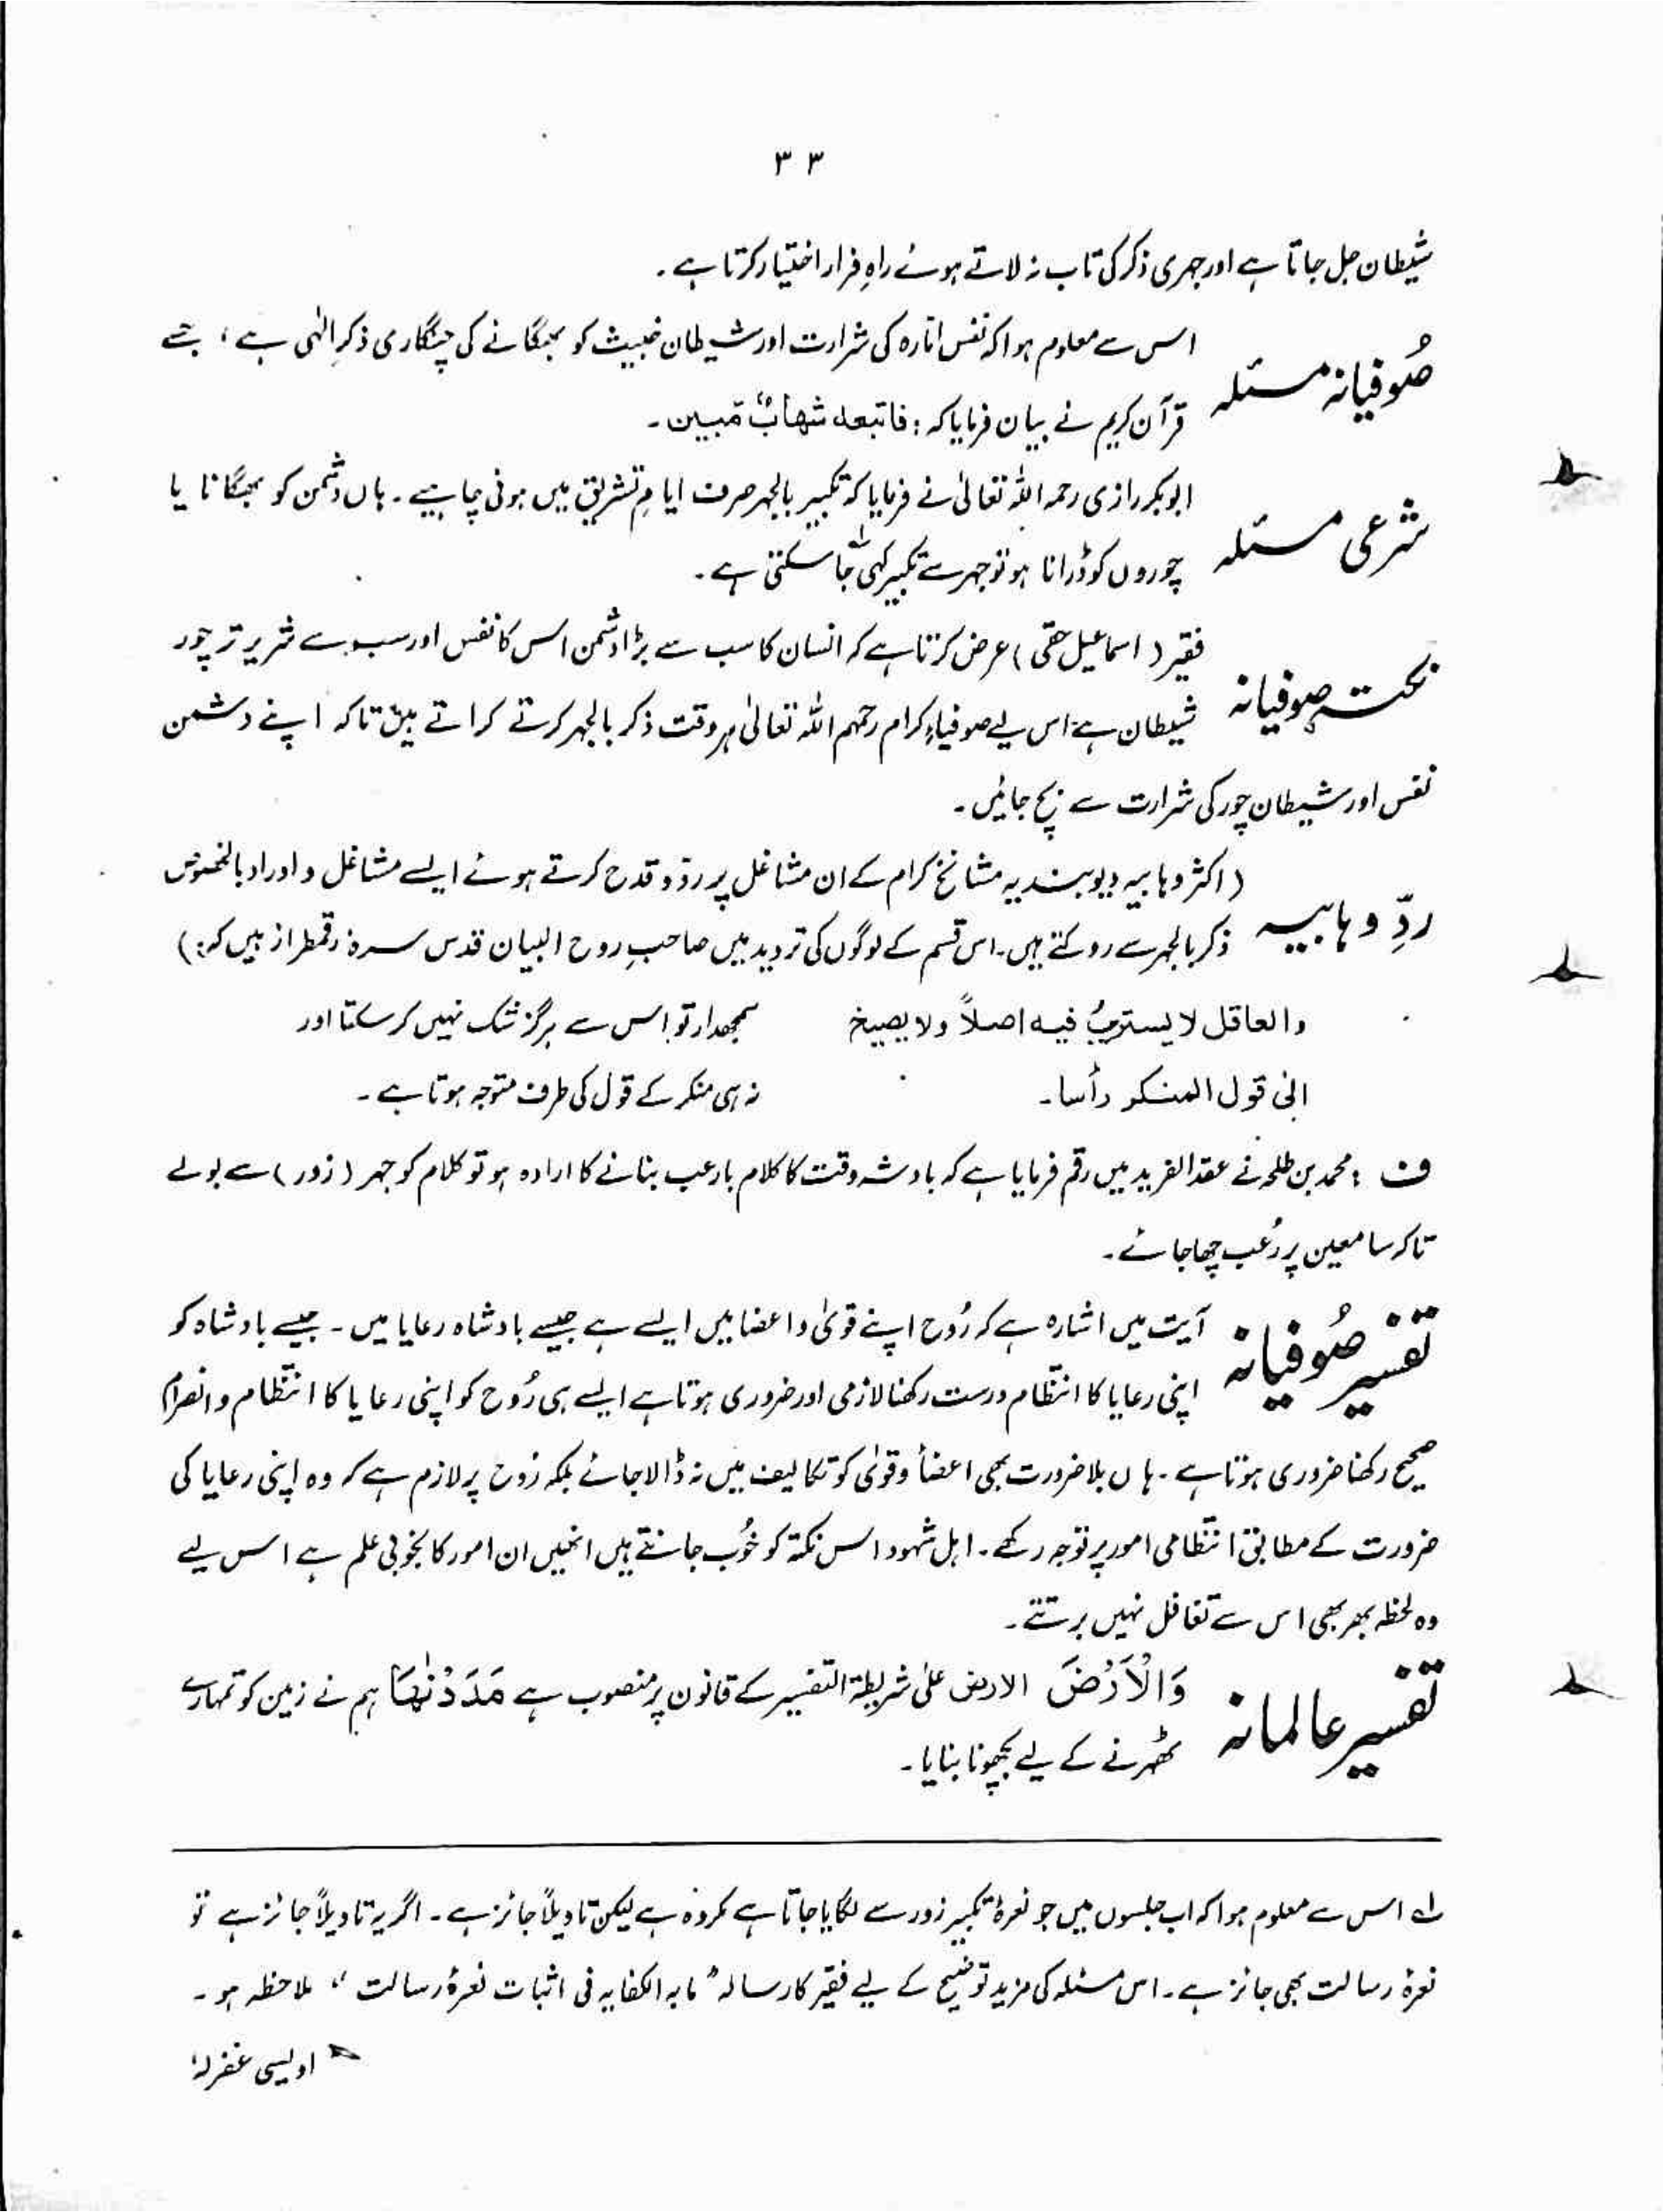 ۳۳
شیطان جل جاتا ہے اور جہری ذکر کی تاب نہ لاتے ہوئے راہِ فرار اختیار کرتا ہے۔
صُوفیانہ مسئلہ اس سے معلوم ہوا کہ نفس امّارہ کی شرارت اور شیطان خبیث کو بھگانے کی چنگاری ذکرِ الٰہی ہے، جسے
قرآن کریم نے بیان فرمایا کہ : فاتبعہ شھابٌ مّبین۔
شرعی مسئلہ ابوبکر رازی رحمہ اللہ تعالیٰ نے فرمایا کہ تکبیر بالجہر صرف ایامِ تشریق میں ہونی چاہیے۔ ہاں دشمن کو بھگانا یا
چوروں کو ڈرانا ہو تو جہر سے تکبیر کہی جا سکتی ہے۔
نکتہ صوفیانہ فقیر (اسماعیل حقی) عرض کرتا ہے کہ انسان کا سب سے بڑا دشمن اس کا نفس اور سب سے شریر تر چور
شیطان ہے اس لیے صوفیاءِ کرام رحمہم اللہ تعالیٰ ہر وقت ذکر بالجہر کرتے کراتے ہیں تاکہ اپنے دشمن
نفس اور شیطان چور کی شرارت سے بچ جائیں۔
ردِّ وہابیہ (اکثر وہابیہ دیوبندیہ مشائخ کرام کے ان مشاغل پر ردّ و قدح کرتے ہوئے ایسے مشاغل و اوراد بالخصوص
ذکر بالجہر سے روکتے ہیں۔ اس قسم کے لوگوں کی تردید میں صاحبِ روح البیان قدس سرہٗ رقمطراز ہیں کہ:)
والعاقل لا یستریبُ فیہ اصلاً ولا یصیخ سمجھدار تو اس سے ہرگز شک نہیں کر سکتا اور
الیٰ قول المنکر رأسا۔ نہ ہی منکر کے قول کی طرف متوجہ ہوتا ہے۔
ف : محمد بن طلحہ نے عقد الفرید میں رقم فرمایا ہے کہ بادشہ وقت کا کلام بارعب بنانے کا ارادہ ہو تو کلام کو جہر (زور) سے بولے
تاکہ سامعین پر رُعب چھا جائے۔
تفسیر صُوفیانہ آیت میں اشارہ ہے کہ رُوح اپنے قویٰ و اعضا میں ایسے ہے جیسے بادشاہ رعایا میں۔ جیسے بادشاہ کو
اپنی رعایا کا انتظام درست رکھنا لازمی اور ضروری ہوتا ہے ایسے ہی رُوح کو اپنی رعایا کا انتظام و انصرام
صحیح رکھنا ضروری ہوتا ہے۔ ہاں بلا ضرورت بھی اعضأ و قویٰ کو تکالیف میں نہ ڈالا جائے بلکہ رُوح پر لازم ہے کہ وہ اپنی رعایا کی
ضرورت کے مطابق انتظامی امور پر توجہ رکھے۔ اہل شہود اس نکتہ کو خُوب جانتے ہیں انھیں ان امور کا بخوبی علم ہے اس لیے
وہ لحظہ بھر بھی اس سے تغافل نہیں برتتے۔
تفسیر عالمانہ وَالْاَرْضَ الارض علیٰ شریطۃ التفسیر کے قانون پر منصوب ہے مَدَدْنٰھَا ہم نے زمین کو تمہارے
ٹھہرنے کے لیے بچھونا بنایا۔
لہ اس سے معلوم ہوا کہ اب جلسوں میں جو نعرۂ تکبیر زور سے لگایا جاتا ہے مکروہ ہے لیکن تاویلاً جائز ہے۔ اگر یہ تاویلاً جائز ہے تو
نعرۂ رسالت بھی جائز ہے۔ اس مسئلہ کی مزید توضیح کے لیے فقیر کا رسالہ "مابہ الکفایہ فی اثبات نعرۂ رسالت" ملاحظہ ہو۔
اویسی غفرلہٗ